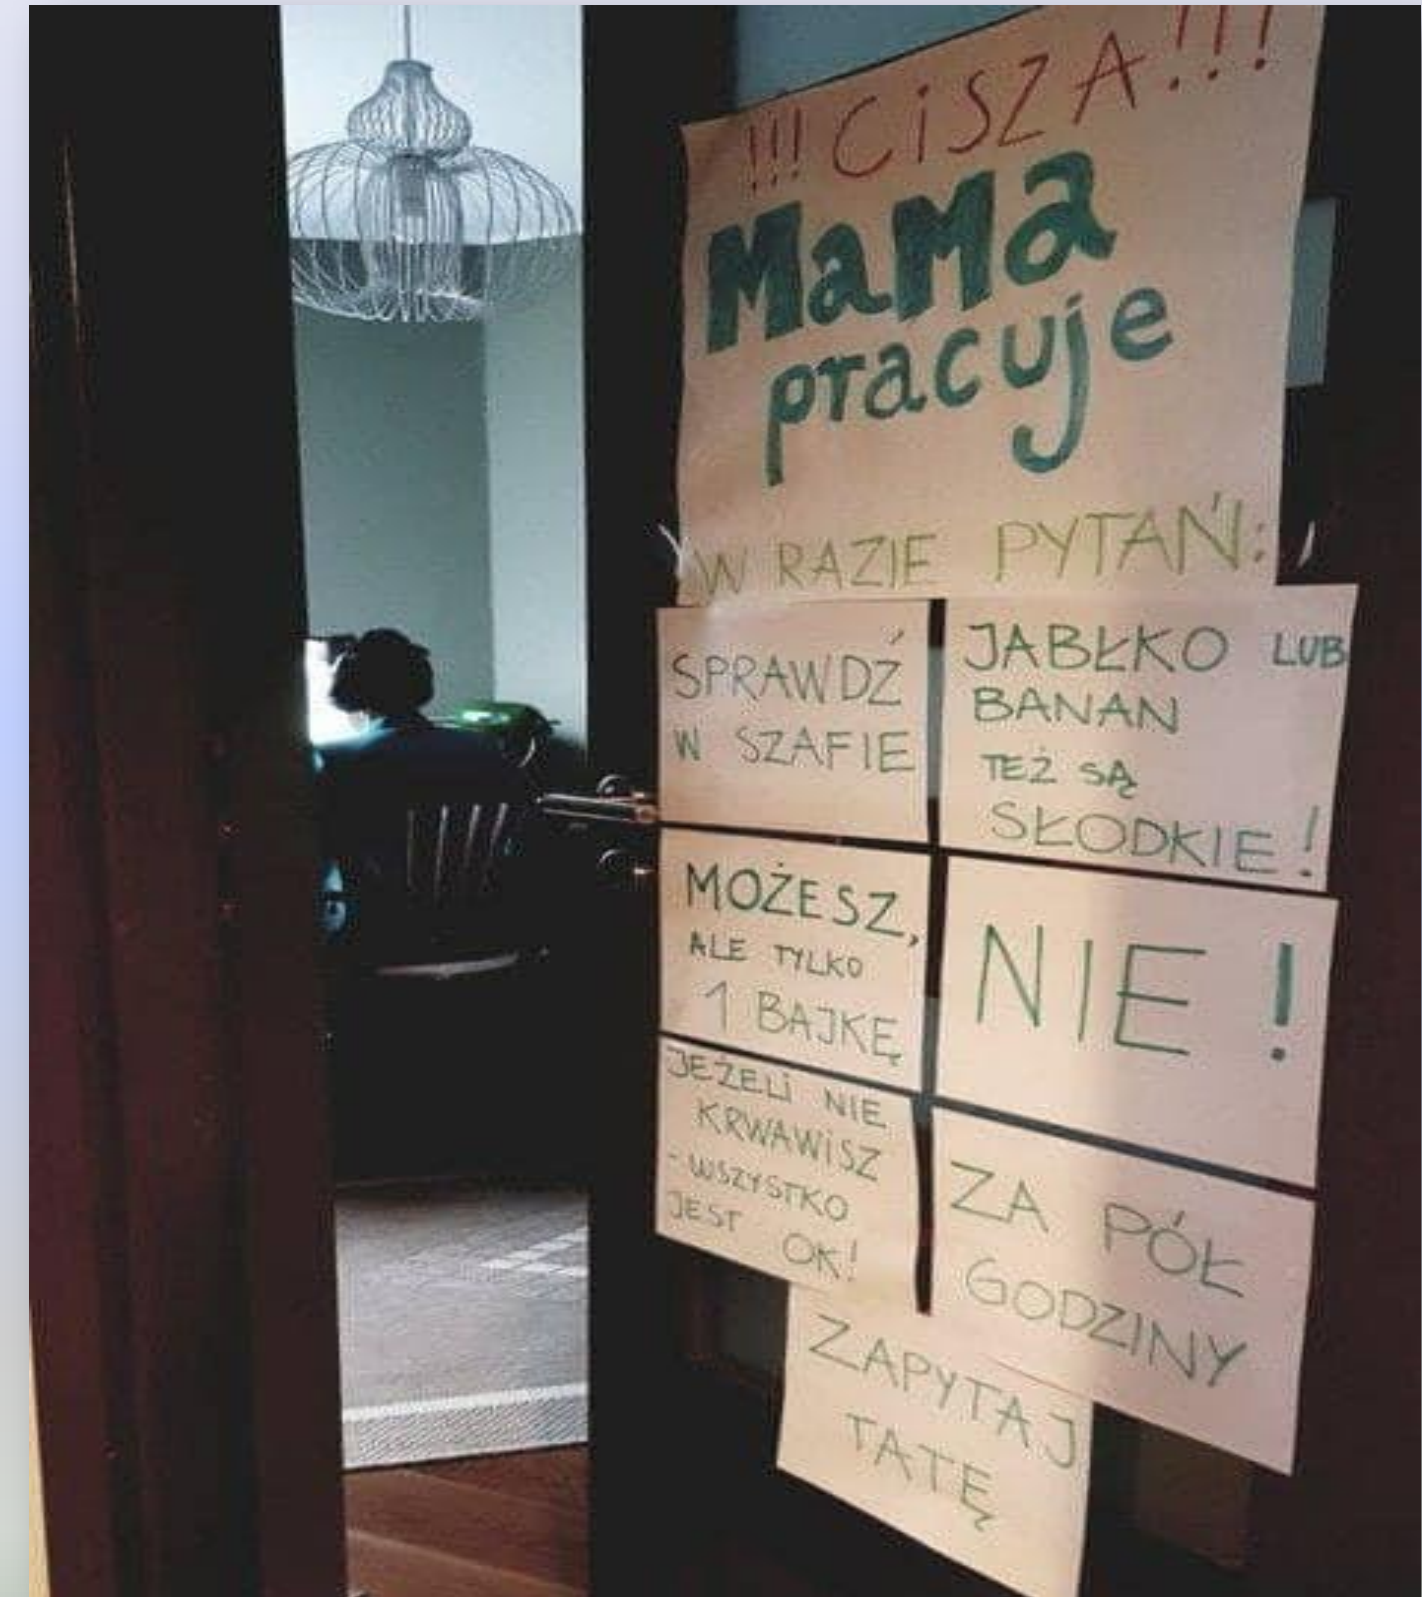 !!! CiSZA!!!
MaMa
pracuje
W RAZIE PYTAŃ:
SPRAWDŹ
W SZAFIE
JABŁKO LUB
BANAN
TEŻ SĄ
SŁODKIE!
MOŻESZ,
ALE TYLKO
1 BAJKĘ
NIE!
JEŻELi NIE
KRWAWiSZ
- WSZYSTKO
JEST OK!
ZA PÓŁ
GODZINY
ZAPYTAJ
TATĘ